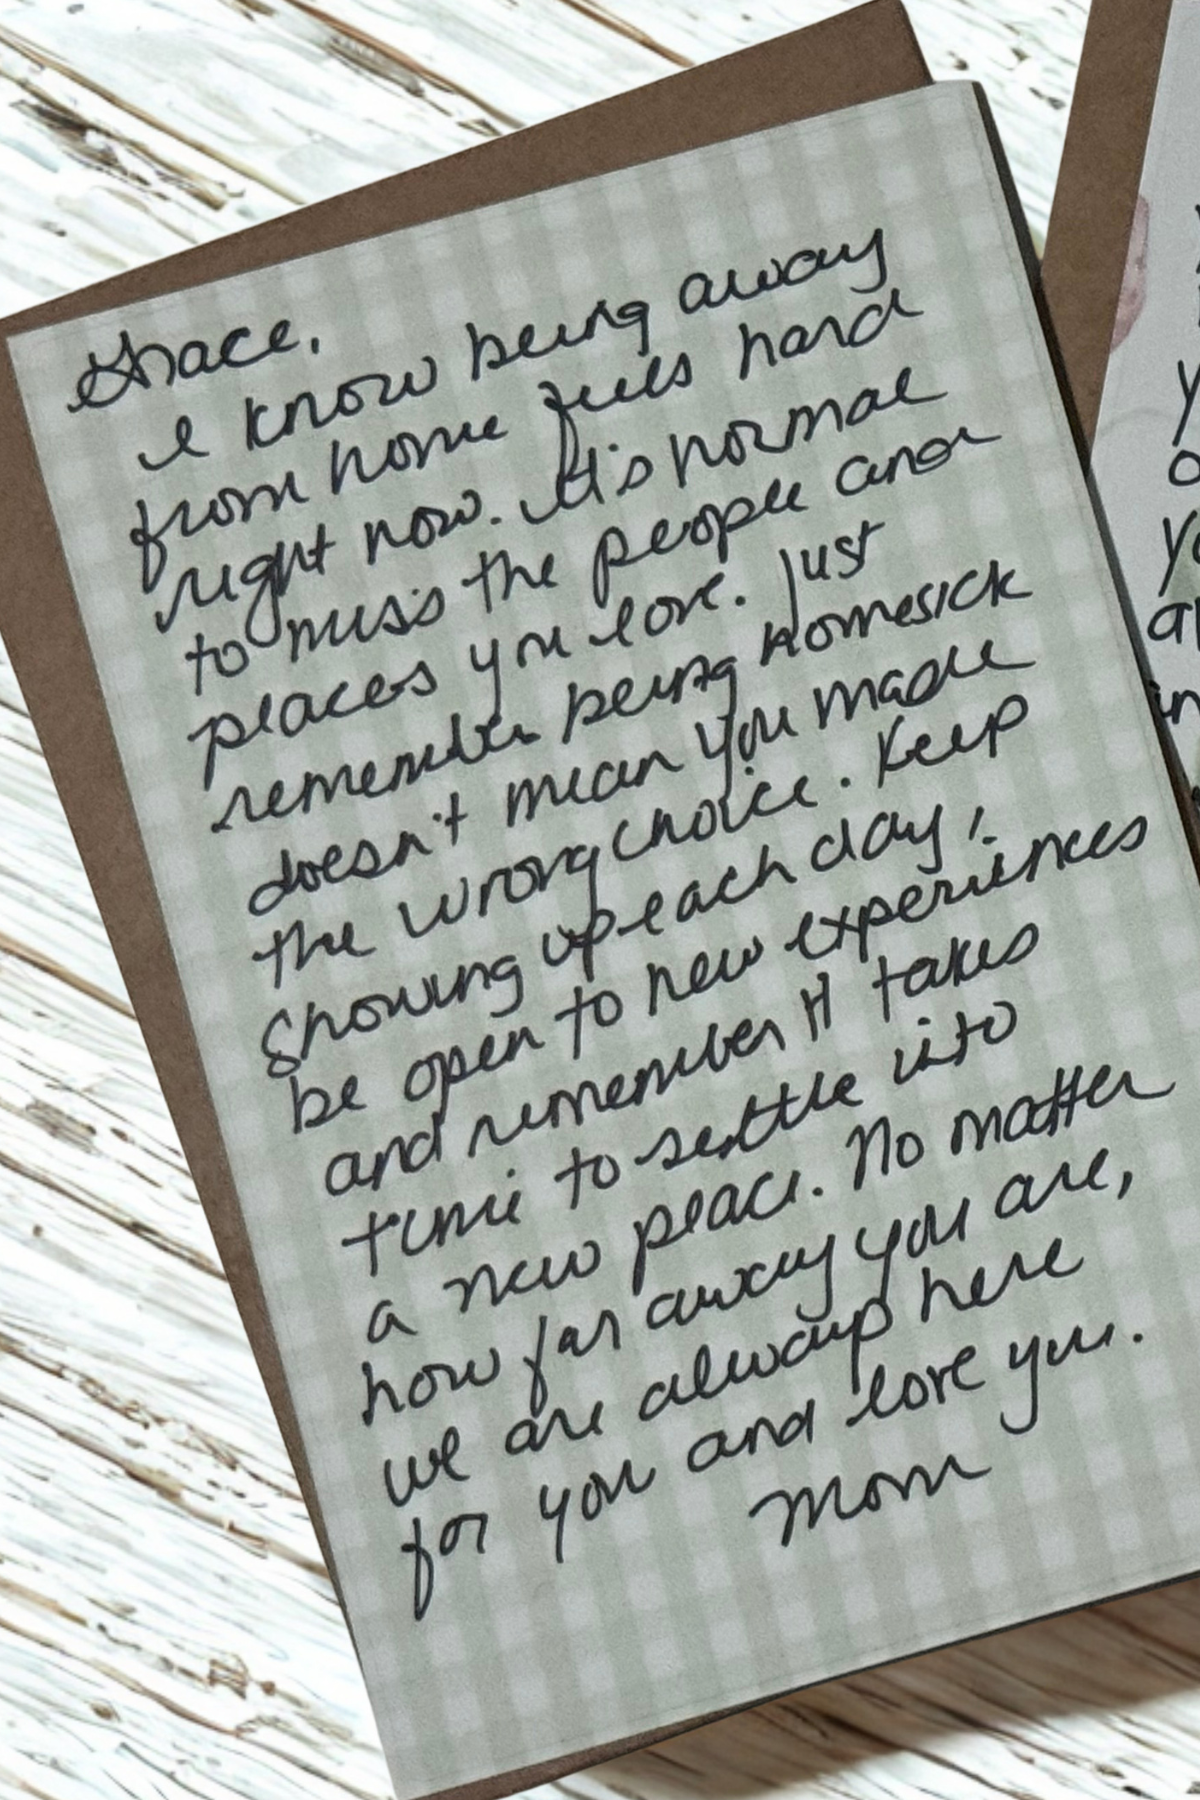 Grace,
I know being away
from home feels hard
right now. It's normal
to miss the people and
places you love. Just
remember being homesick
doesn't mean you made
the wrong choice. Keep
showing up each day,
be open to new experiences
and remember it takes
time to settle into
a new place. No matter
how far away you are,
we are always here
for you and love you.
Mom